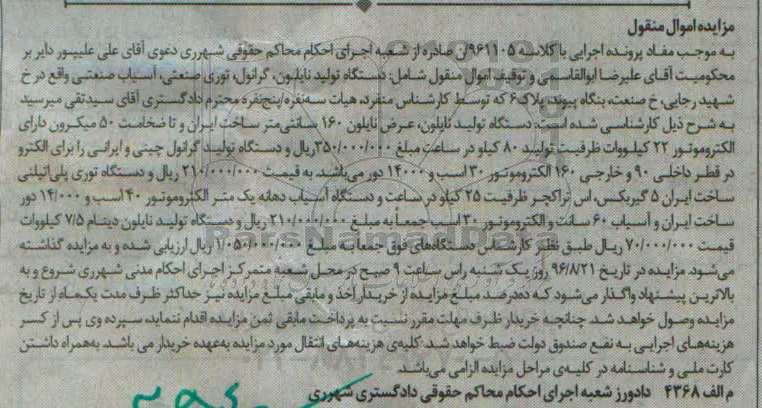 مزایده اموال منقول
به موجب مفاد پرونده اجرایی با کلاسه ۹۶۱۱۰۵/ن صادره از شعبه اجرای احکام محاکم حقوقی شهرری دعوی آقای علی علیپور دایر بر
محکومیت آقای علیرضا ابوالقاسمی و توقیف اموال منقول شامل: دستگاه تولید نایلون، گرانول، توری صنعتی، آسیاب صنعتی واقع در خ
شهید رجایی، خ صنعت، بنگاه پیوند، پلاک ۶ که توسط کارشناس منفرد، هیات سه‌نفره/پنج‌نفره محترم دادگستری آقای سیدتقی میرسید
به شرح ذیل کارشناسی شده است: دستگاه تولید نایلون، عرض نایلون ۱۶۰ سانتی‌متر ساخت ایران و تا ضخامت ۵۰ میکرون دارای
الکتروموتور ۲۲ کیلووات ظرفیت تولید ۸۰ کیلو در ساعت مبلغ ۳۵۰/۰۰۰/۰۰۰ ریال و دستگاه تولید گرانول چینی و ایرانی را برای الکترو
در قطر داخلی ۹۰ و خارجی ۱۶۰ الکتروموتور ۳۰ اسب و ۱۴۰۰۰ دور می‌باشد. به قیمت ۲۱۰/۰۰۰/۰۰۰ ریال و دستگاه توری پلی‌اتیلنی
ساخت ایران ۵ گیربکس، اس تراکچر ظرفیت ۲۵ کیلو در ساعت و دستگاه آسیاب دهانه یک متر الکتروموتور ۴۰ اسب و ۱۴/۰۰۰ دور
ساخت ایران و آسیاب ۶۰ سانت و الکتروموتور ۳۰ اسب جمعاً به مبلغ ۲۱۰/۰۰۰/۰۰۰ ریال و دستگاه تولید نایلون دینام ۷/۵ کیلووات
قیمت ۷۰/۰۰۰/۰۰۰ ریال طبق نظر کارشناس دستگاه‌های فوق جمعا به مبلغ ۱/۰۵۰/۰۰۰/۰۰۰ ریال ارزیابی شده و به مزایده گذاشته
می‌شود. مزایده در تاریخ ۹۶/۸/۲۱ روز یک شنبه راس ساعت ۹ صبح در محل شعبه متمرکز اجرای احکام مدنی شهرری شروع و به
بالاترین پیشنهاد واگذار می‌شود که ده‌درصد مبلغ مزایده از خریدار اخذ و مابقی مبلغ مزایده نیز حداکثر ظرف مدت یک‌ماه از تاریخ
مزایده وصول خواهد شد. چنانچه خریدار ظرف مهلت مقرر نسبت به پرداخت مابقی ثمن مزایده اقدام ننماید، سپرده وی پس از کسر
هزینه‌های اجرایی به نفع صندوق دولت ضبط خواهد شد. کلیه‌ی هزینه‌های انتقال مورد مزایده به‌عهده خریدار می باشد. به‌همراه داشتن
کارت ملی و شناسنامه در کلیه‌ی مراحل مزایده الزامی می‌باشد.
م الف ۴۳۶۸ دادورز شعبه اجرای احکام محاکم حقوقی دادگستری شهرری